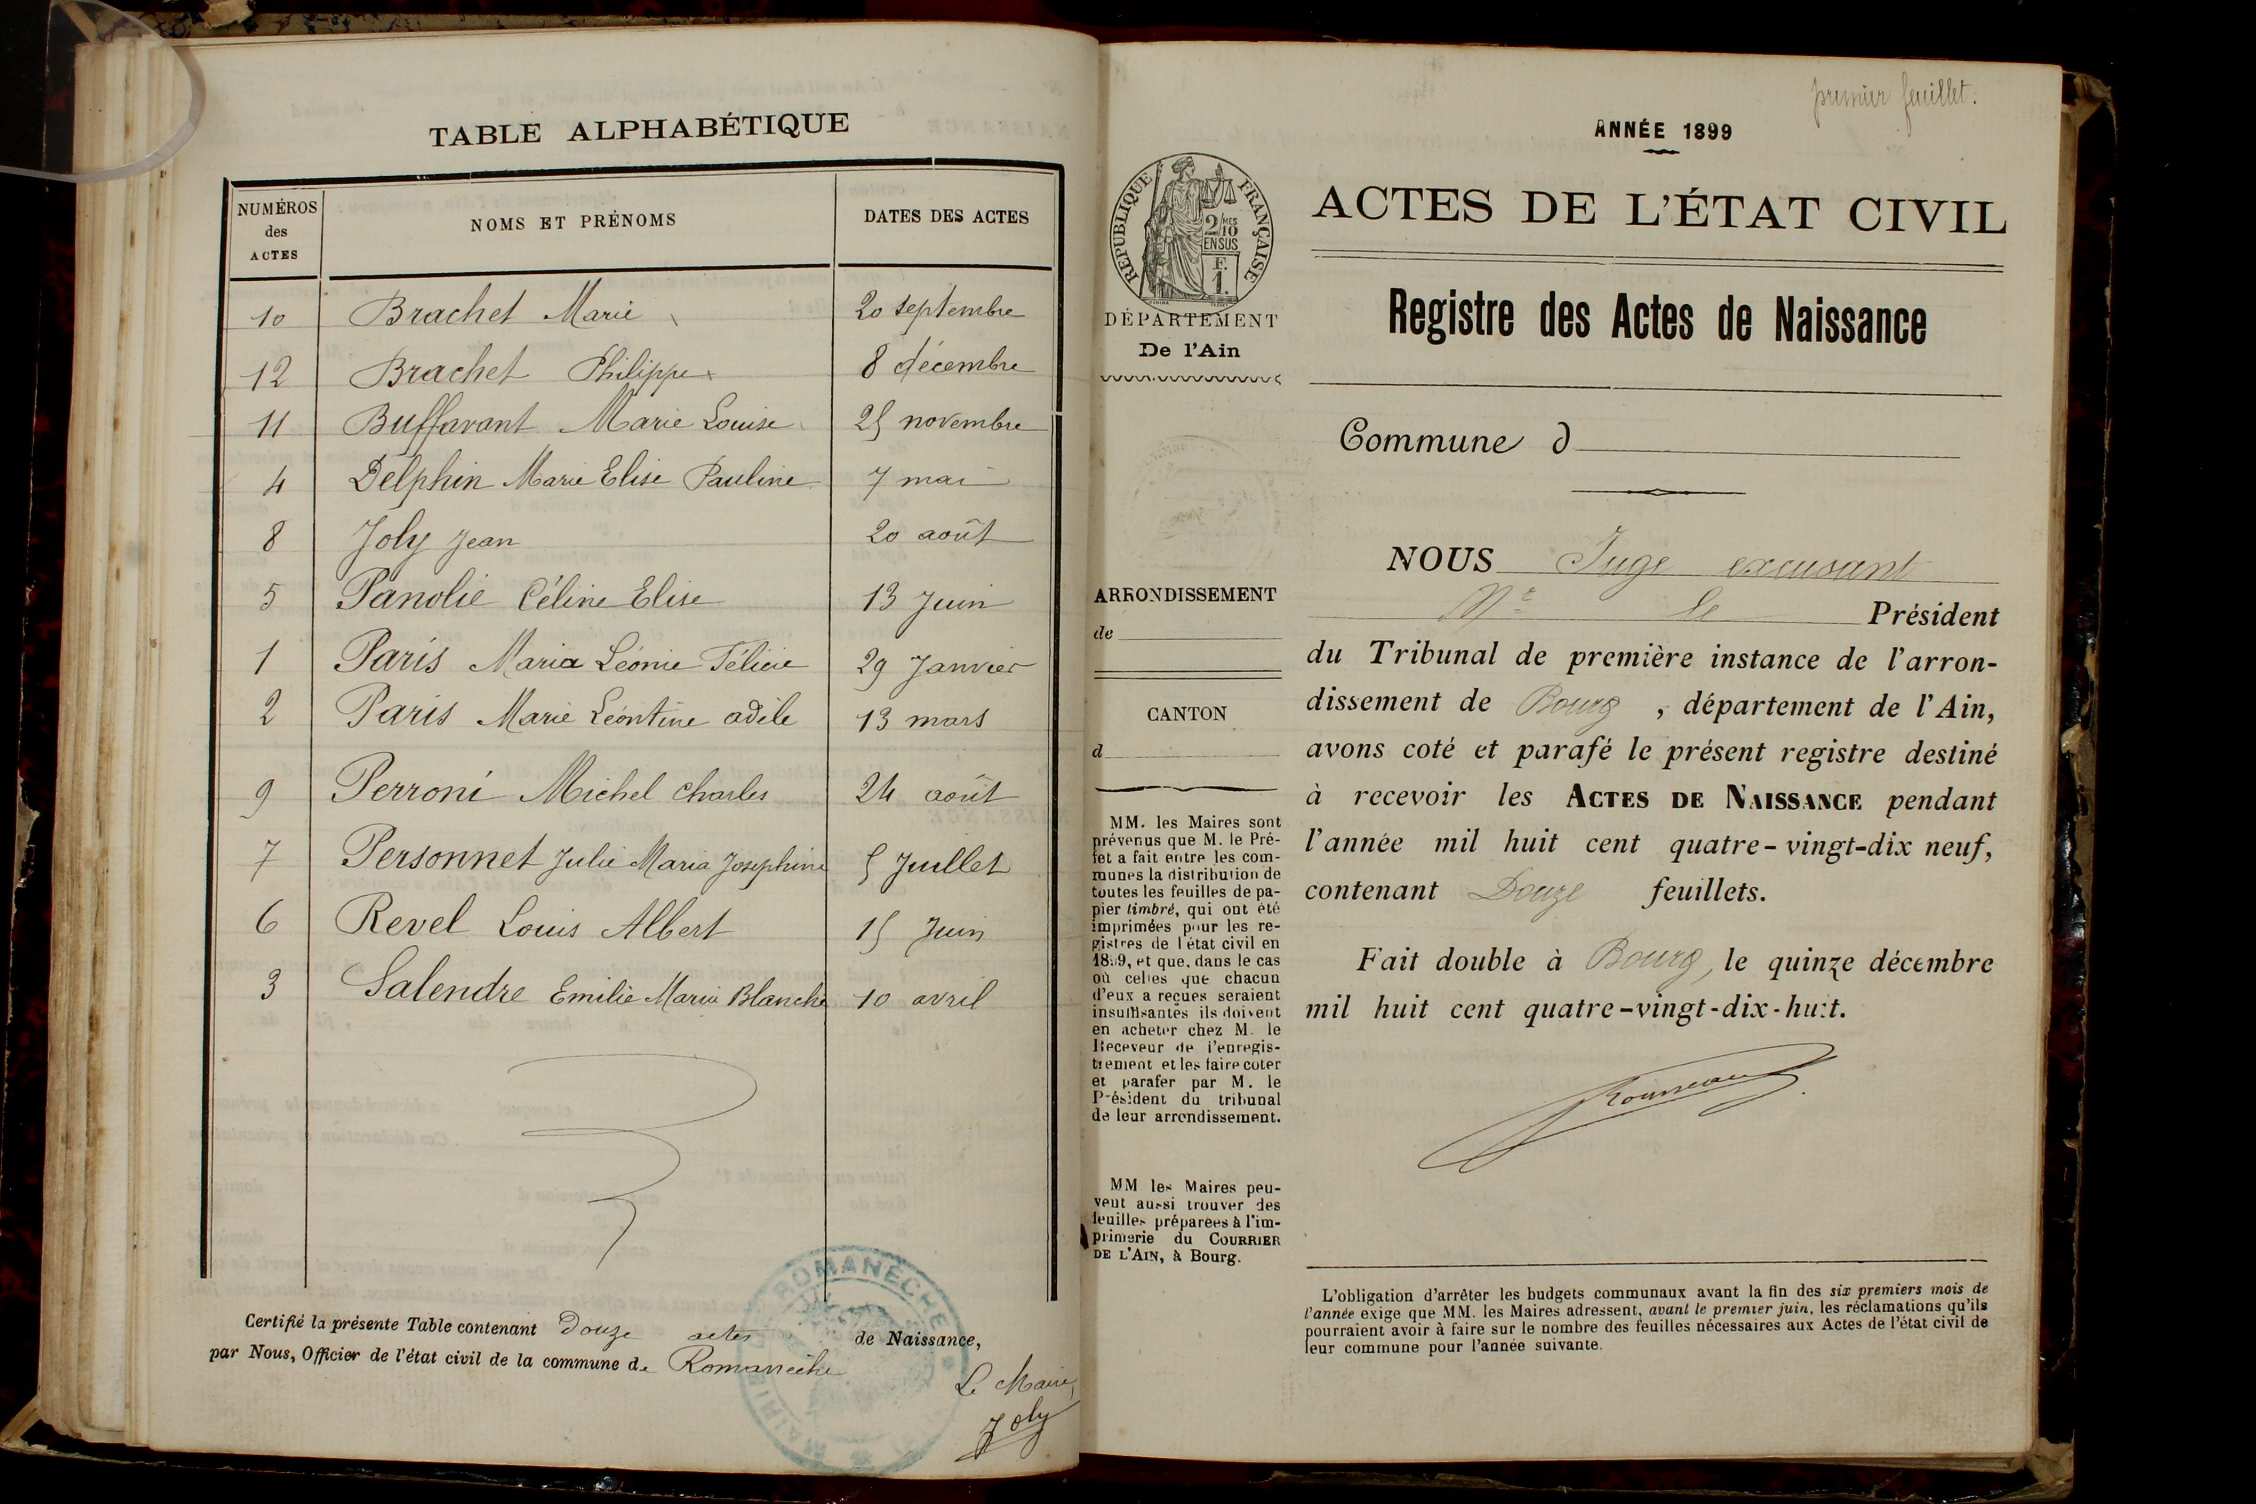 TABLE ALPHABÉTIQUE
NUMÉROS des ACTES NOMS ET PRÉNOMS DATES DES ACTES
10 Brachet Marie 20 septembre
12 Brachet Philippe 8 décembre
11 Buffavant Marie Louise 25 novembre
4 Delphin Marie Elise Pauline 7 mai
8 Joly Jean 20 août
5 Panolie Céline Elise 13 Juin
1 Paris Maria Léonie Félicie 29 Janvier
2 Paris Marie Léontine adèle 13 mars
9 Perroni Michel Charles 24 août
7 Personnet Julie Maria Josephine 5 Juillet
6 Revel Louis Albert 15 Juin
3 Salendre Emilie Maria Blanche 10 avril
Certifié la présente Table contenant Douze actes de Naissance,
par Nous, Officier de l'état civil de la commune de Romanèche
Le Maire,
Joly
MAIRIE ROMANÈCHE
premier feuillet.
ANNÉE 1899
RÉPUBLIQUE FRANÇAISE
2/10 MES
EN SUS
F.
1.
DÉPARTEMENT
De l'Ain
ARRONDISSEMENT
de
CANTON
d
MM. les Maires sont
prévenus que M. le Pré-
fet a fait entre les com-
munes la distribution de
toutes les feuilles de pa-
pier timbré, qui ont été
imprimées pour les re-
gistres de l'état civil en
1899, et que, dans le cas
où celles que chacun
d'eux a reçues seraient
insuffisantes ils doivent
en acheter chez M. le
Receveur de l'enregis-
trement et les faire coter
et parafer par M. le
Président du tribunal
de leur arrondissement.
MM les Maires peu-
vent aussi trouver des
feuilles préparées à l'im-
primerie du COURRIER
DE L'AIN, à Bourg.
ACTES DE L'ÉTAT CIVIL
Registre des Actes de Naissance
Commune d
NOUS Juge excusant
Mr le Président
du Tribunal de première instance de l'arron-
dissement de Bourg, département de l'Ain,
avons coté et parafé le présent registre destiné
à recevoir les ACTES DE NAISSANCE pendant
l'année mil huit cent quatre-vingt-dix neuf,
contenant Douze feuillets.
Fait double à Bourg, le quinze décembre
mil huit cent quatre-vingt-dix-huit.
L'obligation d'arrêter les budgets communaux avant la fin des six premiers mois de
l'année exige que MM. les Maires adressent, avant le premier juin, les réclamations qu'ils
pourraient avoir à faire sur le nombre des feuilles nécessaires aux Actes de l'état civil de
leur commune pour l'année suivante.